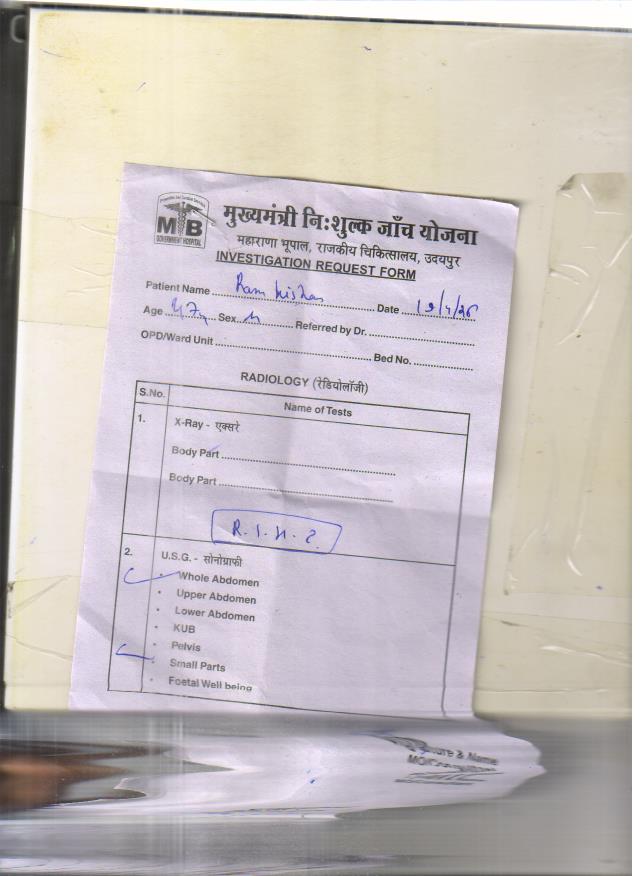 MB
GOVERNMENT HOSPITAL
मुख्यमंत्री नि:शुल्क जाँच योजना
महाराणा भूपाल, राजकीय चिकित्सालय, उदयपुर
INVESTIGATION REQUEST FORM
Patient Name Ram kishan Date
Age Sex M Referred by Dr.
OPD/Ward Unit Bed No.
RADIOLOGY (रेडियोलॉजी)
S.No. Name of Tests
1. X-Ray - एक्सरे
Body Part
Body Part
2. U.S.G. - सोनोग्राफी
• Whole Abdomen
• Upper Abdomen
• Lower Abdomen
• KUB
• Pelvis
• Small Parts
• Foetal Well being
& Name